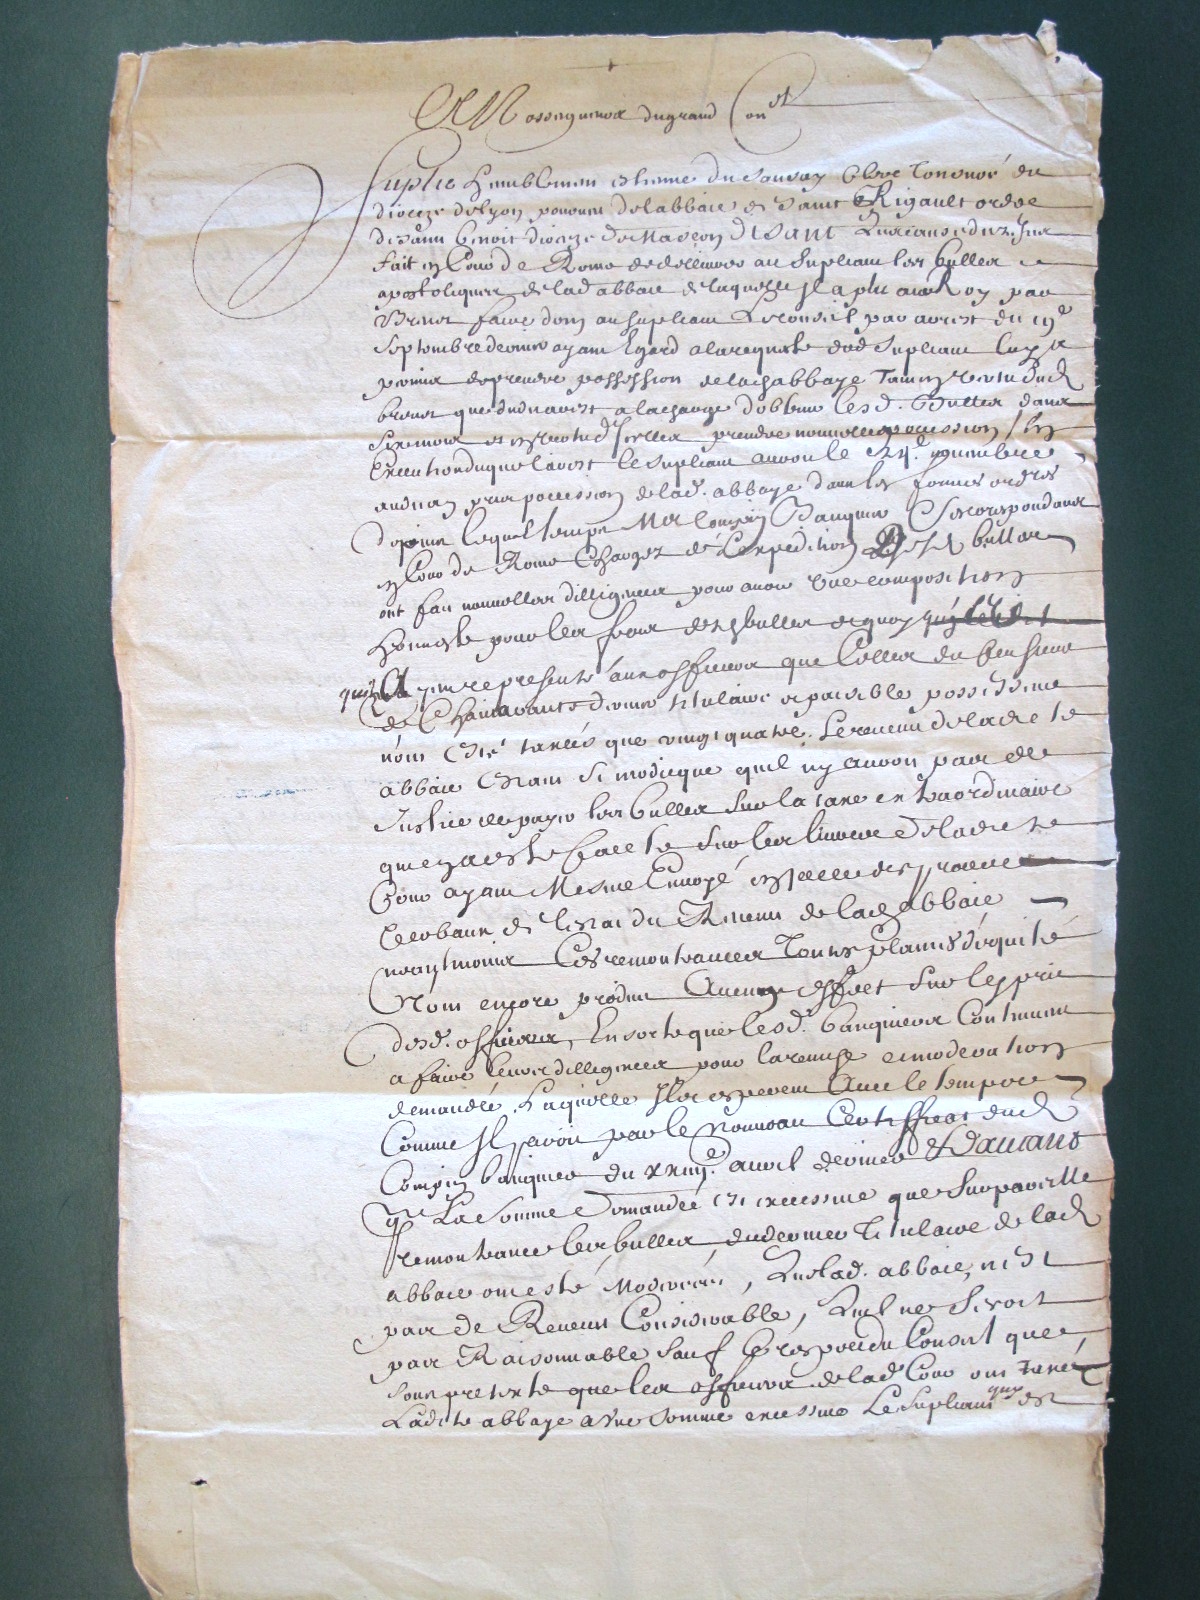 A Nosseigneurs du grand Con.el
Suplie humblement Estienne du Sauzay Clerc Tonsuré du
dioceze de lyon pourveu de labbaie de Saint Rigault ordre
de Saint benoit dioceze de Mascon disant
fait en Cour de Rome de delivrer au supliant les bulles
apostoliques de lad abbaie de laquelle Il a plu au Roy par
Brevet faire don au supliant Le conseil par arrest du
Septembre dernier ayant Egard a la requeste dud Supliant luy a
permis de prendre possession de lad abbaye Tant en vertu dud
brevet que dudit arrest a la charge dobtenir lesd. Bulles dans
Six mois et en vertu d Icelles prendre nouvelle possession / En
Execution duquel arrest le supliant auroit le novembre
audit an pris possession de lad. abbaye dans les formes ordres
Depuis lequel temps Me Compin Banquier Ses correspondans
en Cour de Rome Chargez de Lexpedition Desd bulles
ont fait nouvelles dilligences pour avoir une composition
honneste pour les frais desd bulles de quoy
ayant representé aux officiers que Celles du feu sieur
de Chamarante dernier titulaire et paisible possesseur
nont Esté taxées que vingt quatre. Le revenu de ladite
abbaie Estant si modicque quil ny auroit pas de
Justice de payer les bulles sur la taxe extraordinaire
quen a esté faicte sur les livres de ladicte
Cour ayant Mesme Envoyé
Le verbaux de lestat du Revenu de lad abbaie
neantmoins Ces remontrances Toutes plaines dequité
Nont encore produit Aucun effect sur lesprit
desd. officiers, En sorte que lesd. banquiers Continuent
a faire leurs dilligences pour la remise et moderation
demandée, Laquelle Ils esperent Avec le temps
Comme Il apert par le Nouveau Certifficat dud
Compin banquier du avril dernier Dautant
que La somme demandée est excessive que sur pareille
remontrance les bulles du dernier Titulaire de lad
abbaie ont esté Moderées, Que lad. abbaie, nest
pas de Revenu Considerable, Quil ne seroit
pas Raisonnable sauf le respect du Conseil que
sous pretexte que les officiers de lad Cour ont taxé
Ladite abbaye a une somme excessive Le Supliant quy est